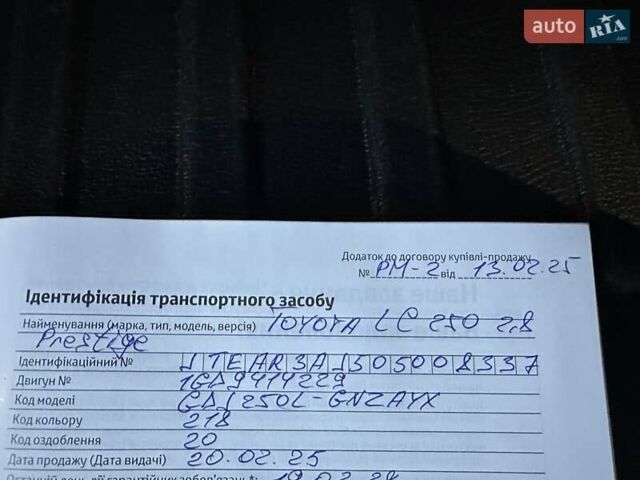 auto RIA .com
Додаток до договору купівлі-продажу
№ РМ-2 від 13.02.25
Ідентифікація транспортного засобу
Найменування (марка, тип, модель, версія) TOYOTA LC 250 2.8
Prestige
Ідентифікаційний № JTEAR3AJ505008337
Двигун № 1GD9414229
Код моделі GDJ250L-GNZAYX
Код кольору 218
Код оздоблення 20
Дата продажу (Дата видачі) 20.02.25
Останній день дії гарантійних зобов'язань*: 19.02.28